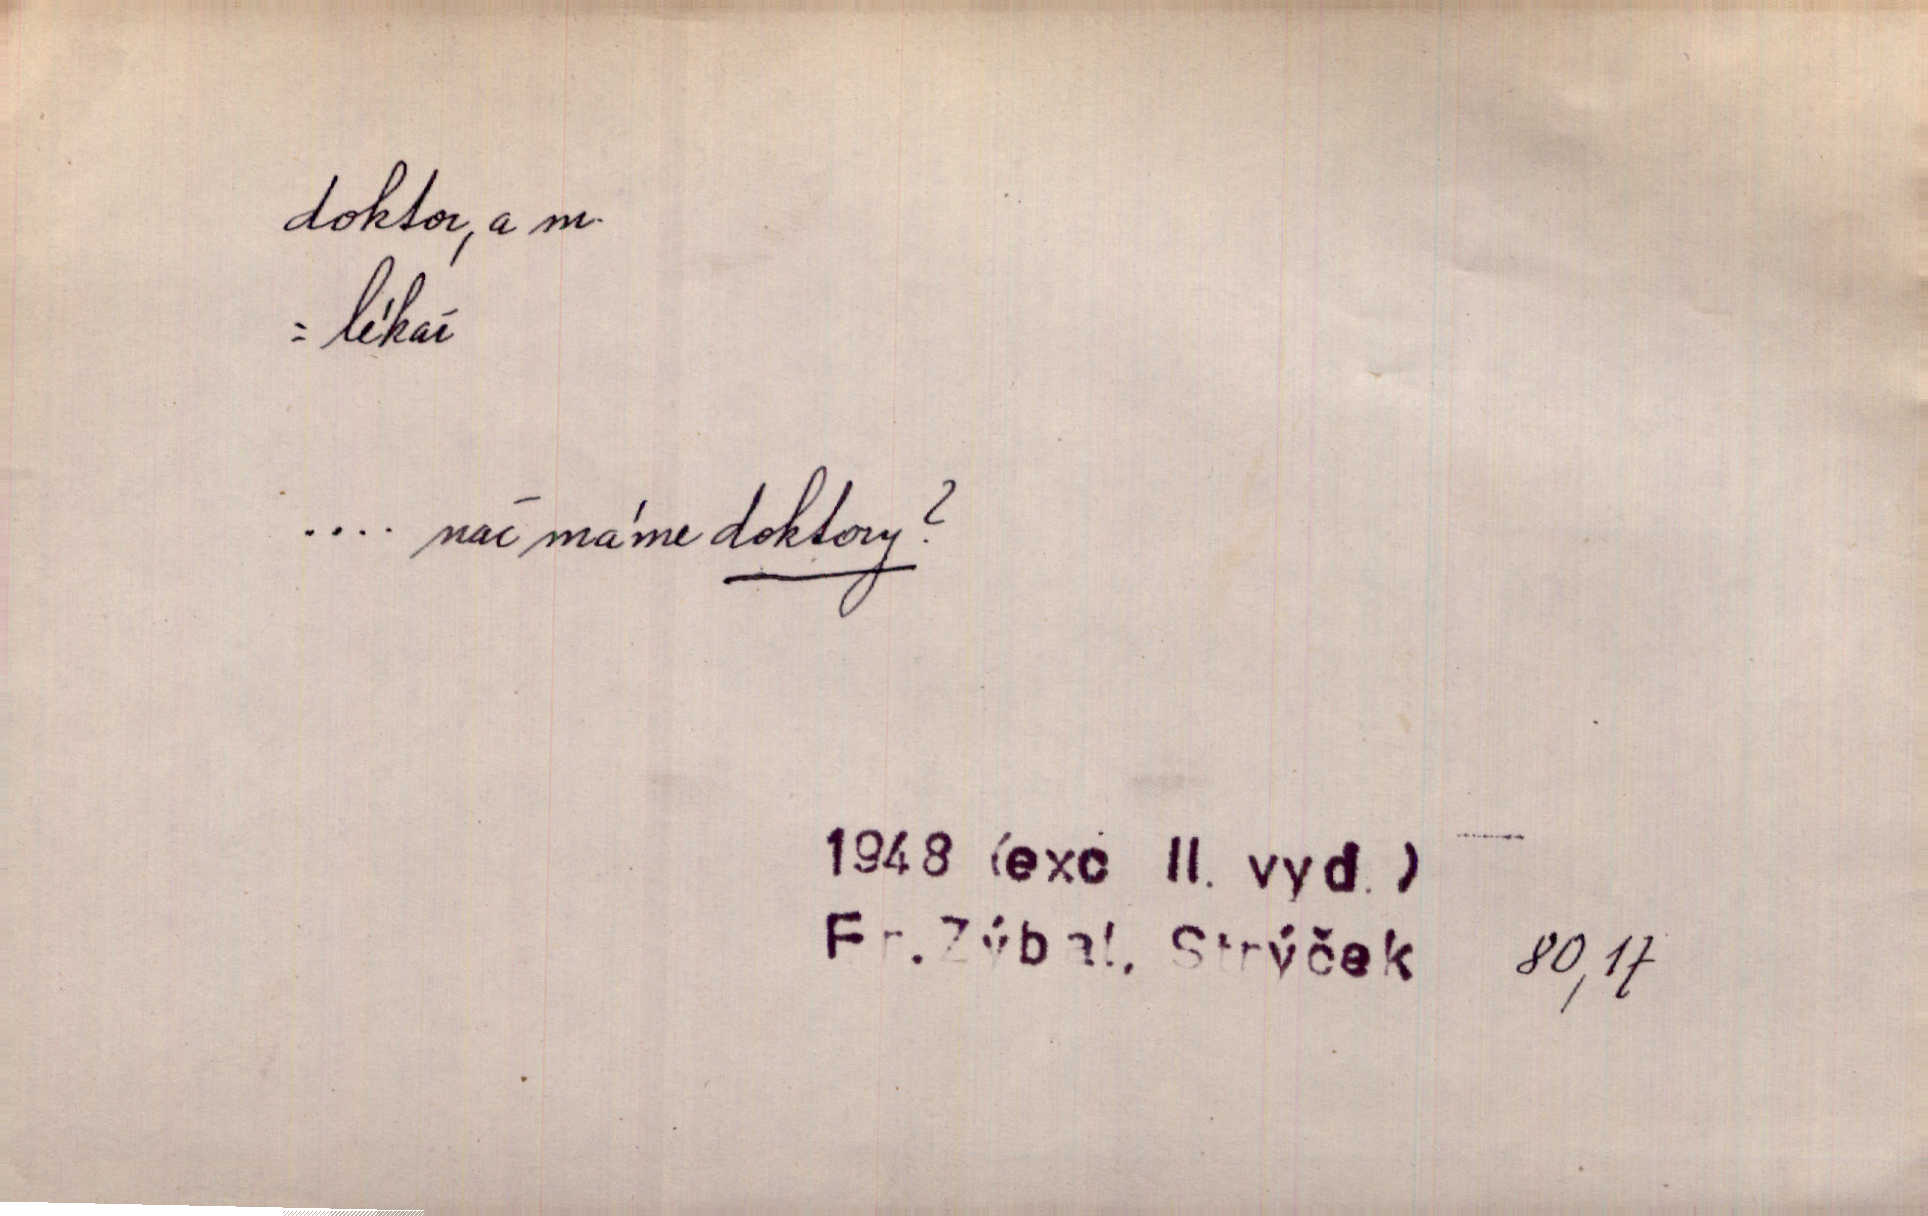 doktor, a m.
= lékař
.... nač máme doktory?
1948 (exc II. vyd.)
Fr. Zýbal, Strýček 80,17